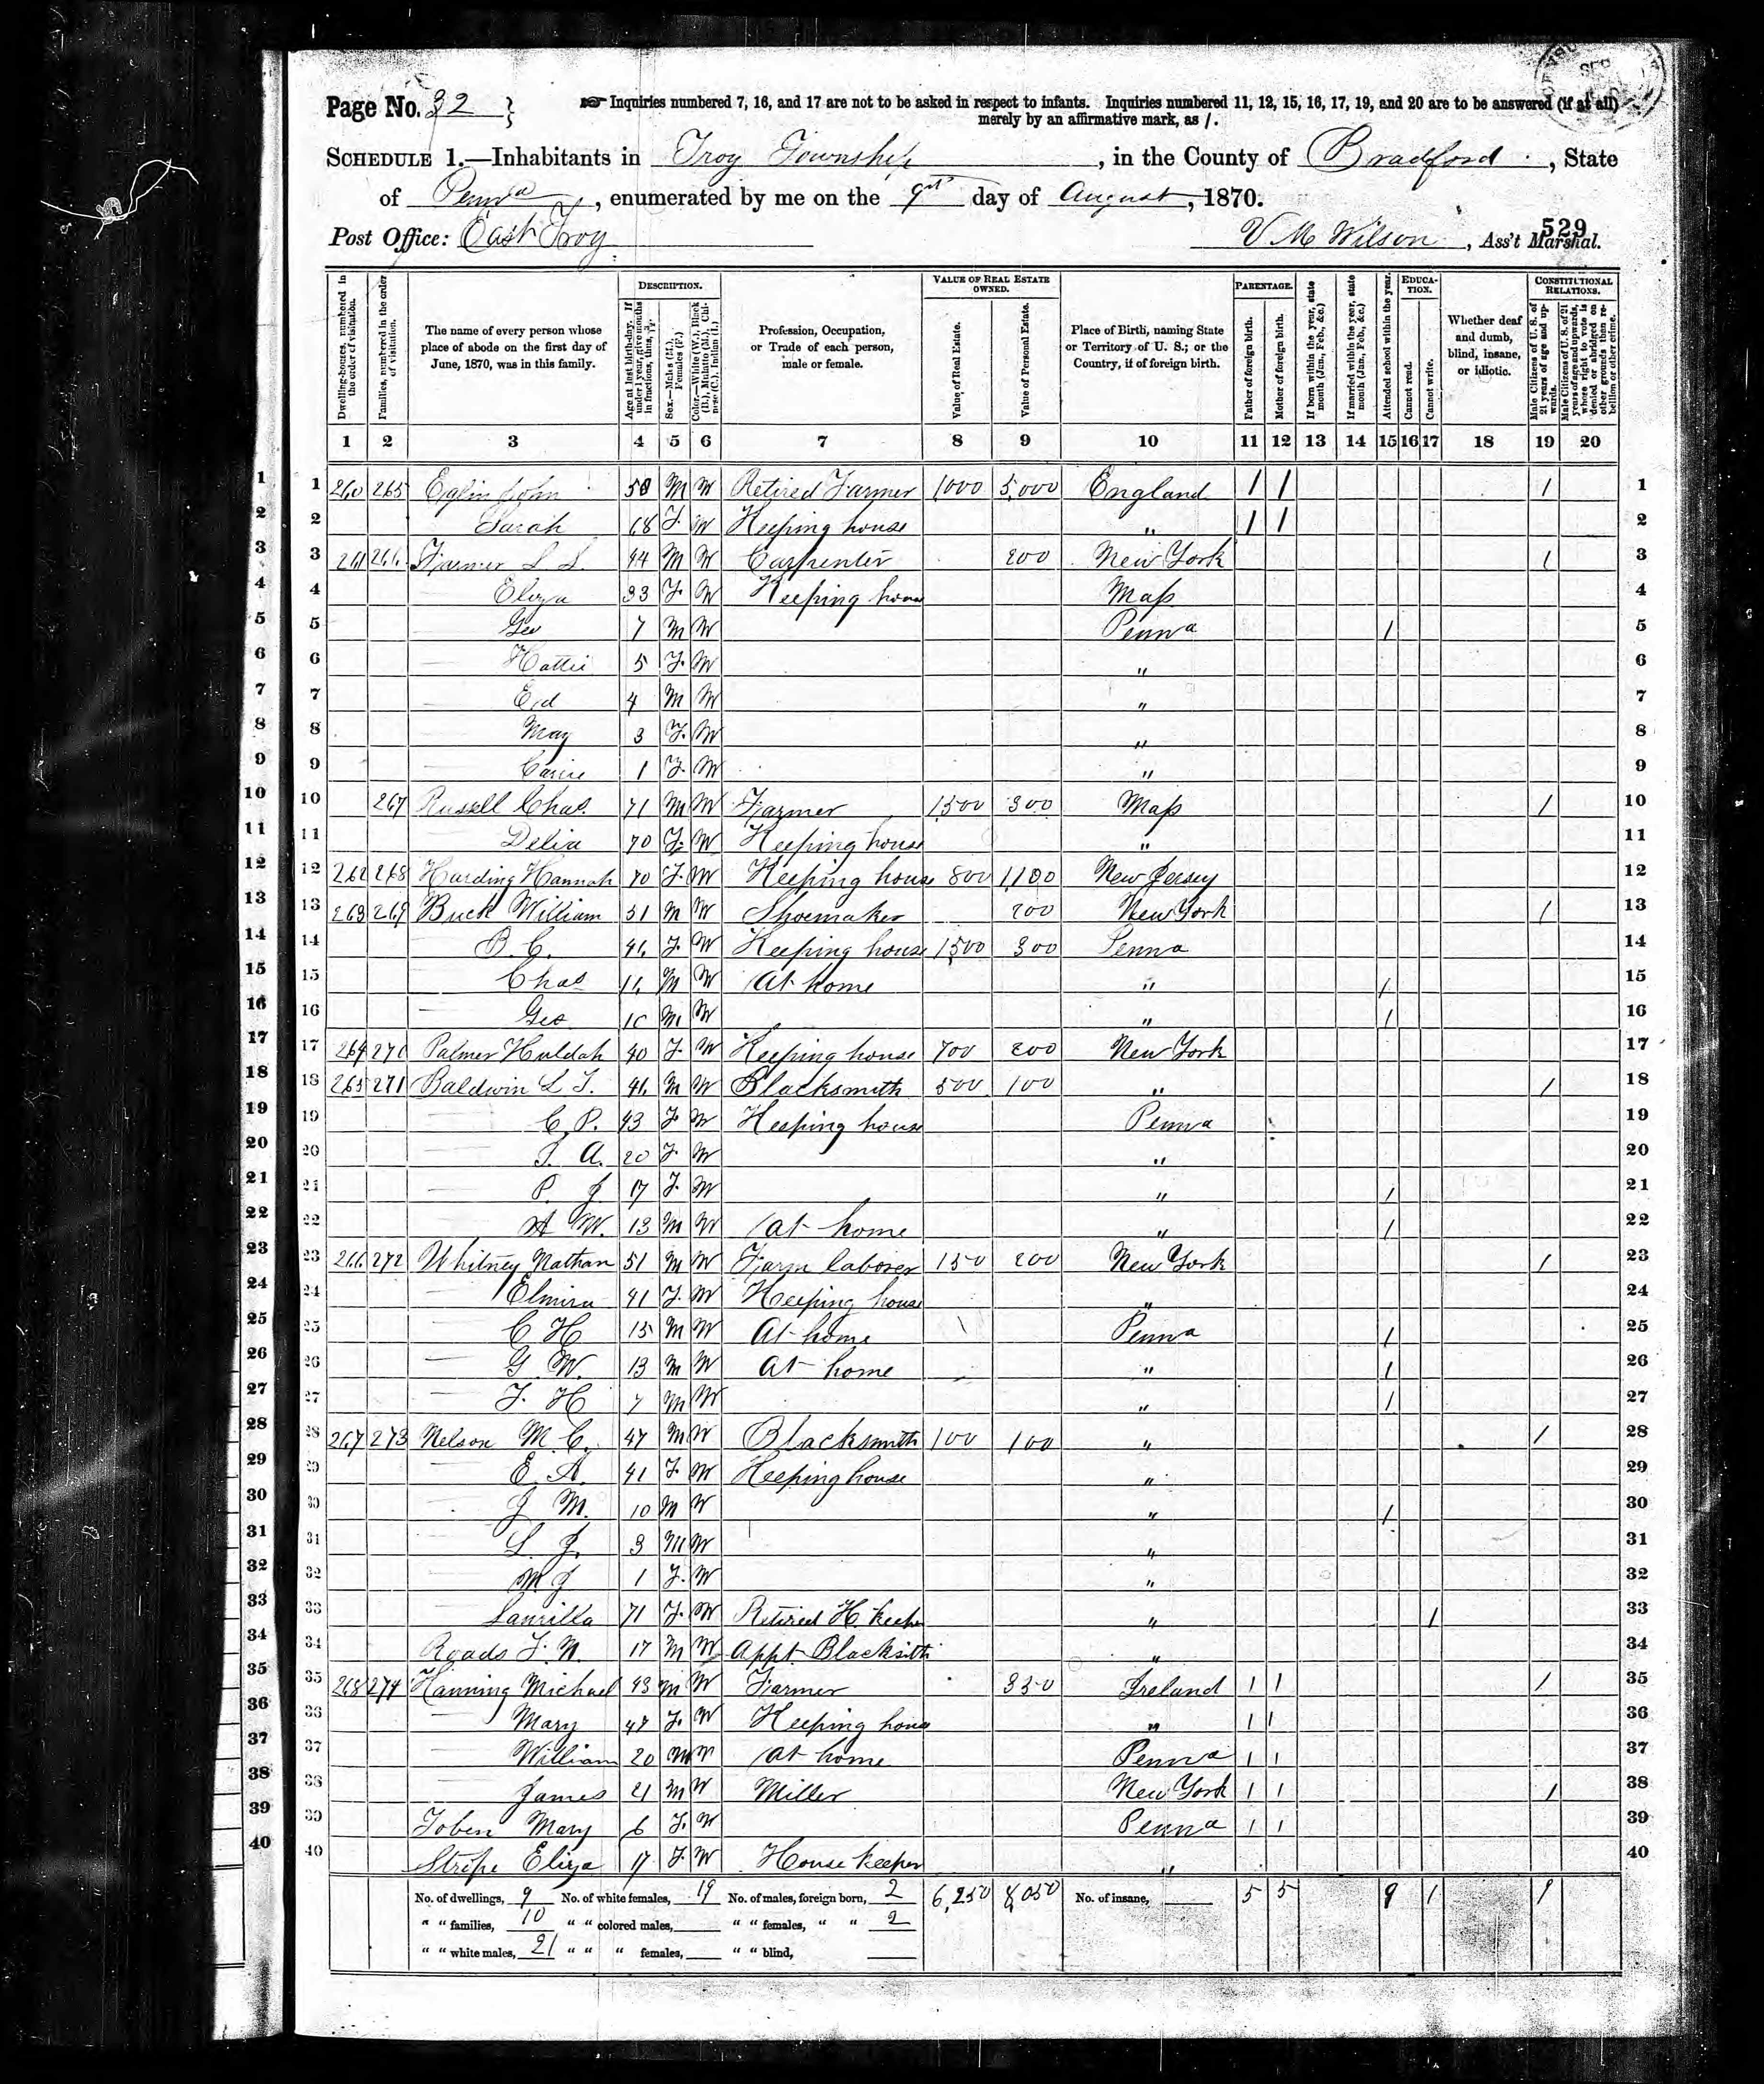 Page No. 32
Inquiries numbered 7, 16, and 17 are not to be asked in respect to infants. Inquiries numbered 11, 12, 15, 16, 17, 19, and 20 are to be answered (if at all)
merely by an affirmative mark, as /.
SCHEDULE 1.—Inhabitants in Troy Township, in the County of Bradford, State
of Penna, enumerated by me on the 9th day of August, 1870.
529
Post Office: East Troy V M Wilson, Ass't Marshal.
Dwelling-houses, numbered in the order of visitation.
Families, numbered in the order of visitation.
The name of every person whose place of abode on the first day of June, 1870, was in this family.
DESCRIPTION.
Age at last birth-day. If under 1 year, give months in fractions, thus, 3/12.
Sex.—Males (M.), Females (F.)
Color.—White (W.), Black (B.), Mulatto (M.), Chinese (C.), Indian (I.)
Profession, Occupation, or Trade of each person, male or female.
VALUE OF REAL ESTATE OWNED.
Value of Real Estate.
Value of Personal Estate.
Place of Birth, naming State or Territory of U. S.; or the Country, if of foreign birth.
PARENTAGE.
Father of foreign birth.
Mother of foreign birth.
If born within the year, state month (Jan., Feb., &c.)
If married within the year, state month (Jan., Feb., &c.)
Attended school within the year.
EDUCATION.
Cannot read.
Cannot write.
Whether deaf and dumb, blind, insane, or idiotic.
CONSTITUTIONAL RELATIONS.
Male Citizens of U. S. of 21 years of age and upwards.
Male Citizens of U. S. of 21 years of age and upwards, where right to vote is denied or abridged on other grounds than rebellion or other crime.
1 2 3 4 5 6 7 8 9 10 11 12 13 14 15 16 17 18 19 20
1 1 260 265 John 50 M W Retired Farmer 1000 5,000 England / / / 1
2 2 Sarah 68 F. W Keeping house " / / 2
3 3 261 266 L. L. 44 M W Carpenter 200 New York / 3
4 4 Eliza 33 F. W Keeping house Mass 4
5 5 Geo 7 M W Penna / 5
6 6 Hattie 5 F. W " 6
7 7 Ed 4 M W " 7
8 8 May 3 F. W " 8
9 9 Carrie 1 F. W " 9
10 10 267 Russell Chas. 71 M W Farmer 1500 300 Mass / 10
11 11 Delia 70 F. W Keeping house " 11
12 12 262 268 Harding Hannah 70 F. W Keeping house 800 1,100 New Jersey 12
13 13 263 269 Buck William 51 M W Shoemaker 200 New York / 13
14 14 B. C. 46 F. W Keeping house 1500 300 Penna 14
15 15 Chas 16 M W At home " / 15
16 16 Geo 10 M W " / 16
17 17 264 270 Palmer Huldah 40 F. W Keeping house 700 200 New York 17
18 18 265 271 Baldwin L T. 46 M W Blacksmith 500 100 " / 18
19 19 C. P. 43 F W Keeping house Penna 19
20 20 A. 20 F. W " 20
21 21 P. J 17 F. W " / 21
22 22 A W. 13 M W At home " / 22
23 23 266 272 Whitney Nathan 51 M W Farm laborer 150 200 New York / 23
24 24 Elmira 41 F. W Keeping house " 24
25 25 C H 15 M W At home Penna / 25
26 26 G W. 13 M W At home " / 26
27 27 F. H 7 M W " / 27
28 28 267 273 Nelson M. C. 47 M W Blacksmith 100 100 " / 28
29 29 E A. 41 F. W Keeping house " 29
30 30 J M. 10 M W " / 30
31 31 L J. 3 M W " 31
32 32 M J 1 F. W " 32
33 33 71 F. W Retired H. keeper " / 33
34 34 Roads 17 M W Appt Blacksith " 34
35 35 268 274 Hanning Michael 43 M W Farmer 350 Ireland / / / 35
36 36 Mary 47 F. W Keeping house " / / 36
37 37 William 20 M W At home Penna / / 37
38 38 James 21 M W Miller New York / / / 38
39 39 Toben Mary 6 F. W Penna / / 39
40 40 Stripe Eliza 17 F. W House keeper " 40
No. of dwellings, 9 No. of white females, 19 No. of males, foreign born, 2 6,250 8,050 No. of insane, 5 5 9 1 9
" " families, 10 " " colored males, " " females, " " 2
" " white males, 21 " " " females, " " blind,